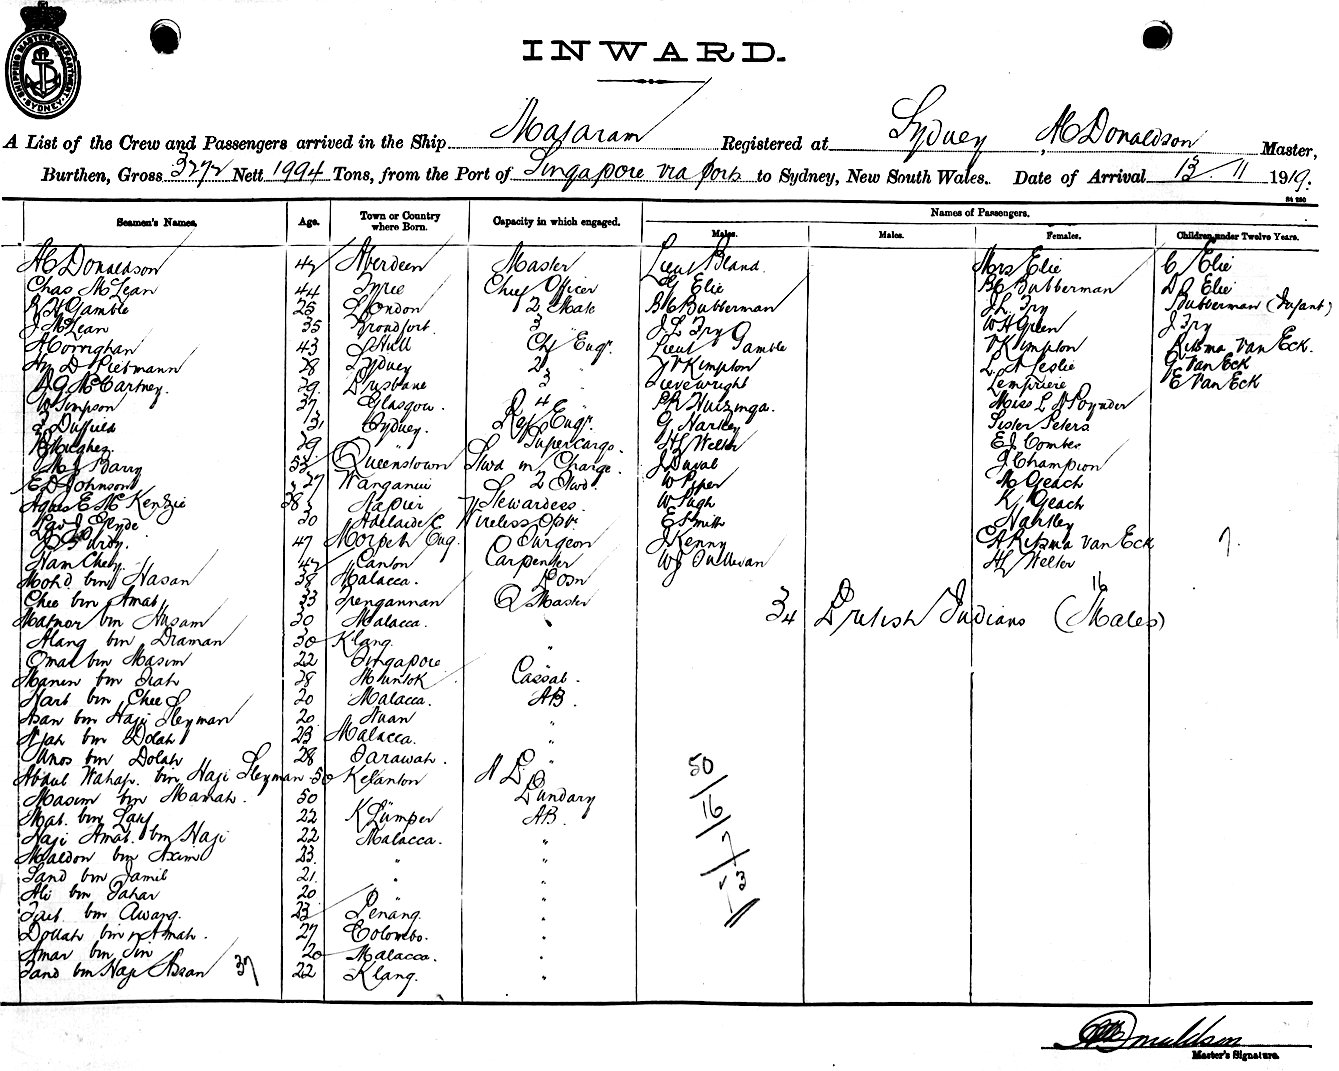 SHIPPING MASTER'S DEPARTMENT SYDNEY
INWARD.
A List of the Crew and Passengers arrived in the Ship Mataram Registered at Sydney A C Donaldson Master,
Burthen, Gross 3272 Nett 1994 Tons, from the Port of Singapore via ports to Sydney, New South Wales. Date of Arrival 13/11 1919.
Names of Passengers.
Seamen's Names. Age. Town or Country where Born. Capacity in which engaged. Males. Males. Females. Children under Twelve Years.
A C Donaldson 42 Aberdeen Master Lieut Bland Mrs Elie C Elie
Chas McLean 44 Tyree Chief Officer G Elie BC Bubberman D Elie
Gamble 25 London 2 Mate BC Bubberman JL Fry Bubberman (Infant)
J McLean 35 Broadfort 3 " JL Fry WH Green J Fry
Horrighan 43 Hull Chf Engr. Lieut Gamble V Kimpton Ritsma Van Eck.
D Pietmann 28 Sydney 2 " V Kimpton L N Leslie G Van Eck
A G McCartney. 29 Brisbane 3 " Sievewright Lempriere E Van Eck
W Simpson 27 Glasgow. 4 " Huizinga. Miss L N Poynder
Duffield Sydney. Ref Engr. G Hartley Sister Peters
Hughes. 29 " Supercargo. HL Welter EJ Combes
M J Barry 53 Queenstown Stwd in Charge. J Duval J Champion
E D Johnson 27 Wanganui 2 Stwd. W Piper M Geach
Agnes E McKenzie 38 Napier Stewardess W Pugh K Geach
Clyde 20 Adelaide Wireless Optr E Smith Hartley
Purdy. 47 Morpeth Eng. Surgeon J Kenny C A Ritsma van Eck 7.
Ham Chey. 42 Canton Carpenter WJ Sullivan HL Welter
Mohd bin Hasan 38 Malacca. Bosn
Chee bin Amat 33 Trengannan Q Master 16
Matnor bin Husam 30 Malacca. " 34 British Indians (Males)
Alang bin Draman 30 Klang. "
Omar bin Masim 22 Singapore "
Manen bin Itah 28 Muntok Cassab.
Hart bin Chee 20 Malacca. AB.
Asan bin Haji Sleyman 20 Auan "
Njah bin Dolah 23 Malacca. "
Unos bin Dolah 28 Sarawak. "
Abdul Wahap. bin Haji Sleyman 50 Kelanton 50
Masim bin Manah. 50 " Bundary
Mat. bin Lay 22 K Lumper AB. 16
Haji Amat. bin Haji 22 Malacca. "
Maldon bin Axim 23. " " 7
Sand bin Jamil 21. " "
Ali bin Tahar 20 " " 73
Tait. bin Awang. 23 Penang. "
Dollah bin Amah. 27 Colombo. "
Amar bin Tin 20 Malacca. "
Sand bin Haji Assan 37 22 Klang. "
A C Donaldson
Master's Signature.